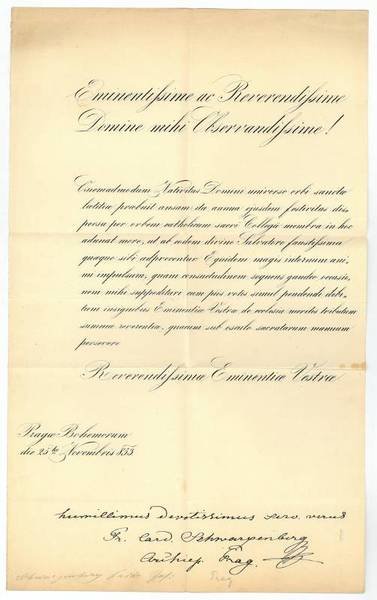 Eminentissime ac Reverendissime
Domine mihi Observandissime!
Quemadmodum Nativitas Domini universo orbi sanctæ
lætitiæ præbuit ansam ita annua ejusdem festivitas dis
persa per orbem catholicum sacri Collegii membra in hoc
adunat more, ut ab eodem divino Salvatore faustissima
quæque sibi adprecentur. Equidem magis interno ani,
mi impulsu, quam consuetudinem sequens gaudeo occasio,
nem mihi suppeditari cum piis votis simul pendendi debi,
tum insignibus Eminentiæ Vestræ de ecclesia meritis tributum
summa reverentia, quacum sub osculo sacratarum manuum
persevero
Reverendissimæ Eminentiæ Vestræ
Pragæ Bohemorum
die 25ta Novembris
humillimus devotissimus serv. verus
Fr. Card. Schwarzenberg
Archiep. Prag.
Schwarzenberg
Prag